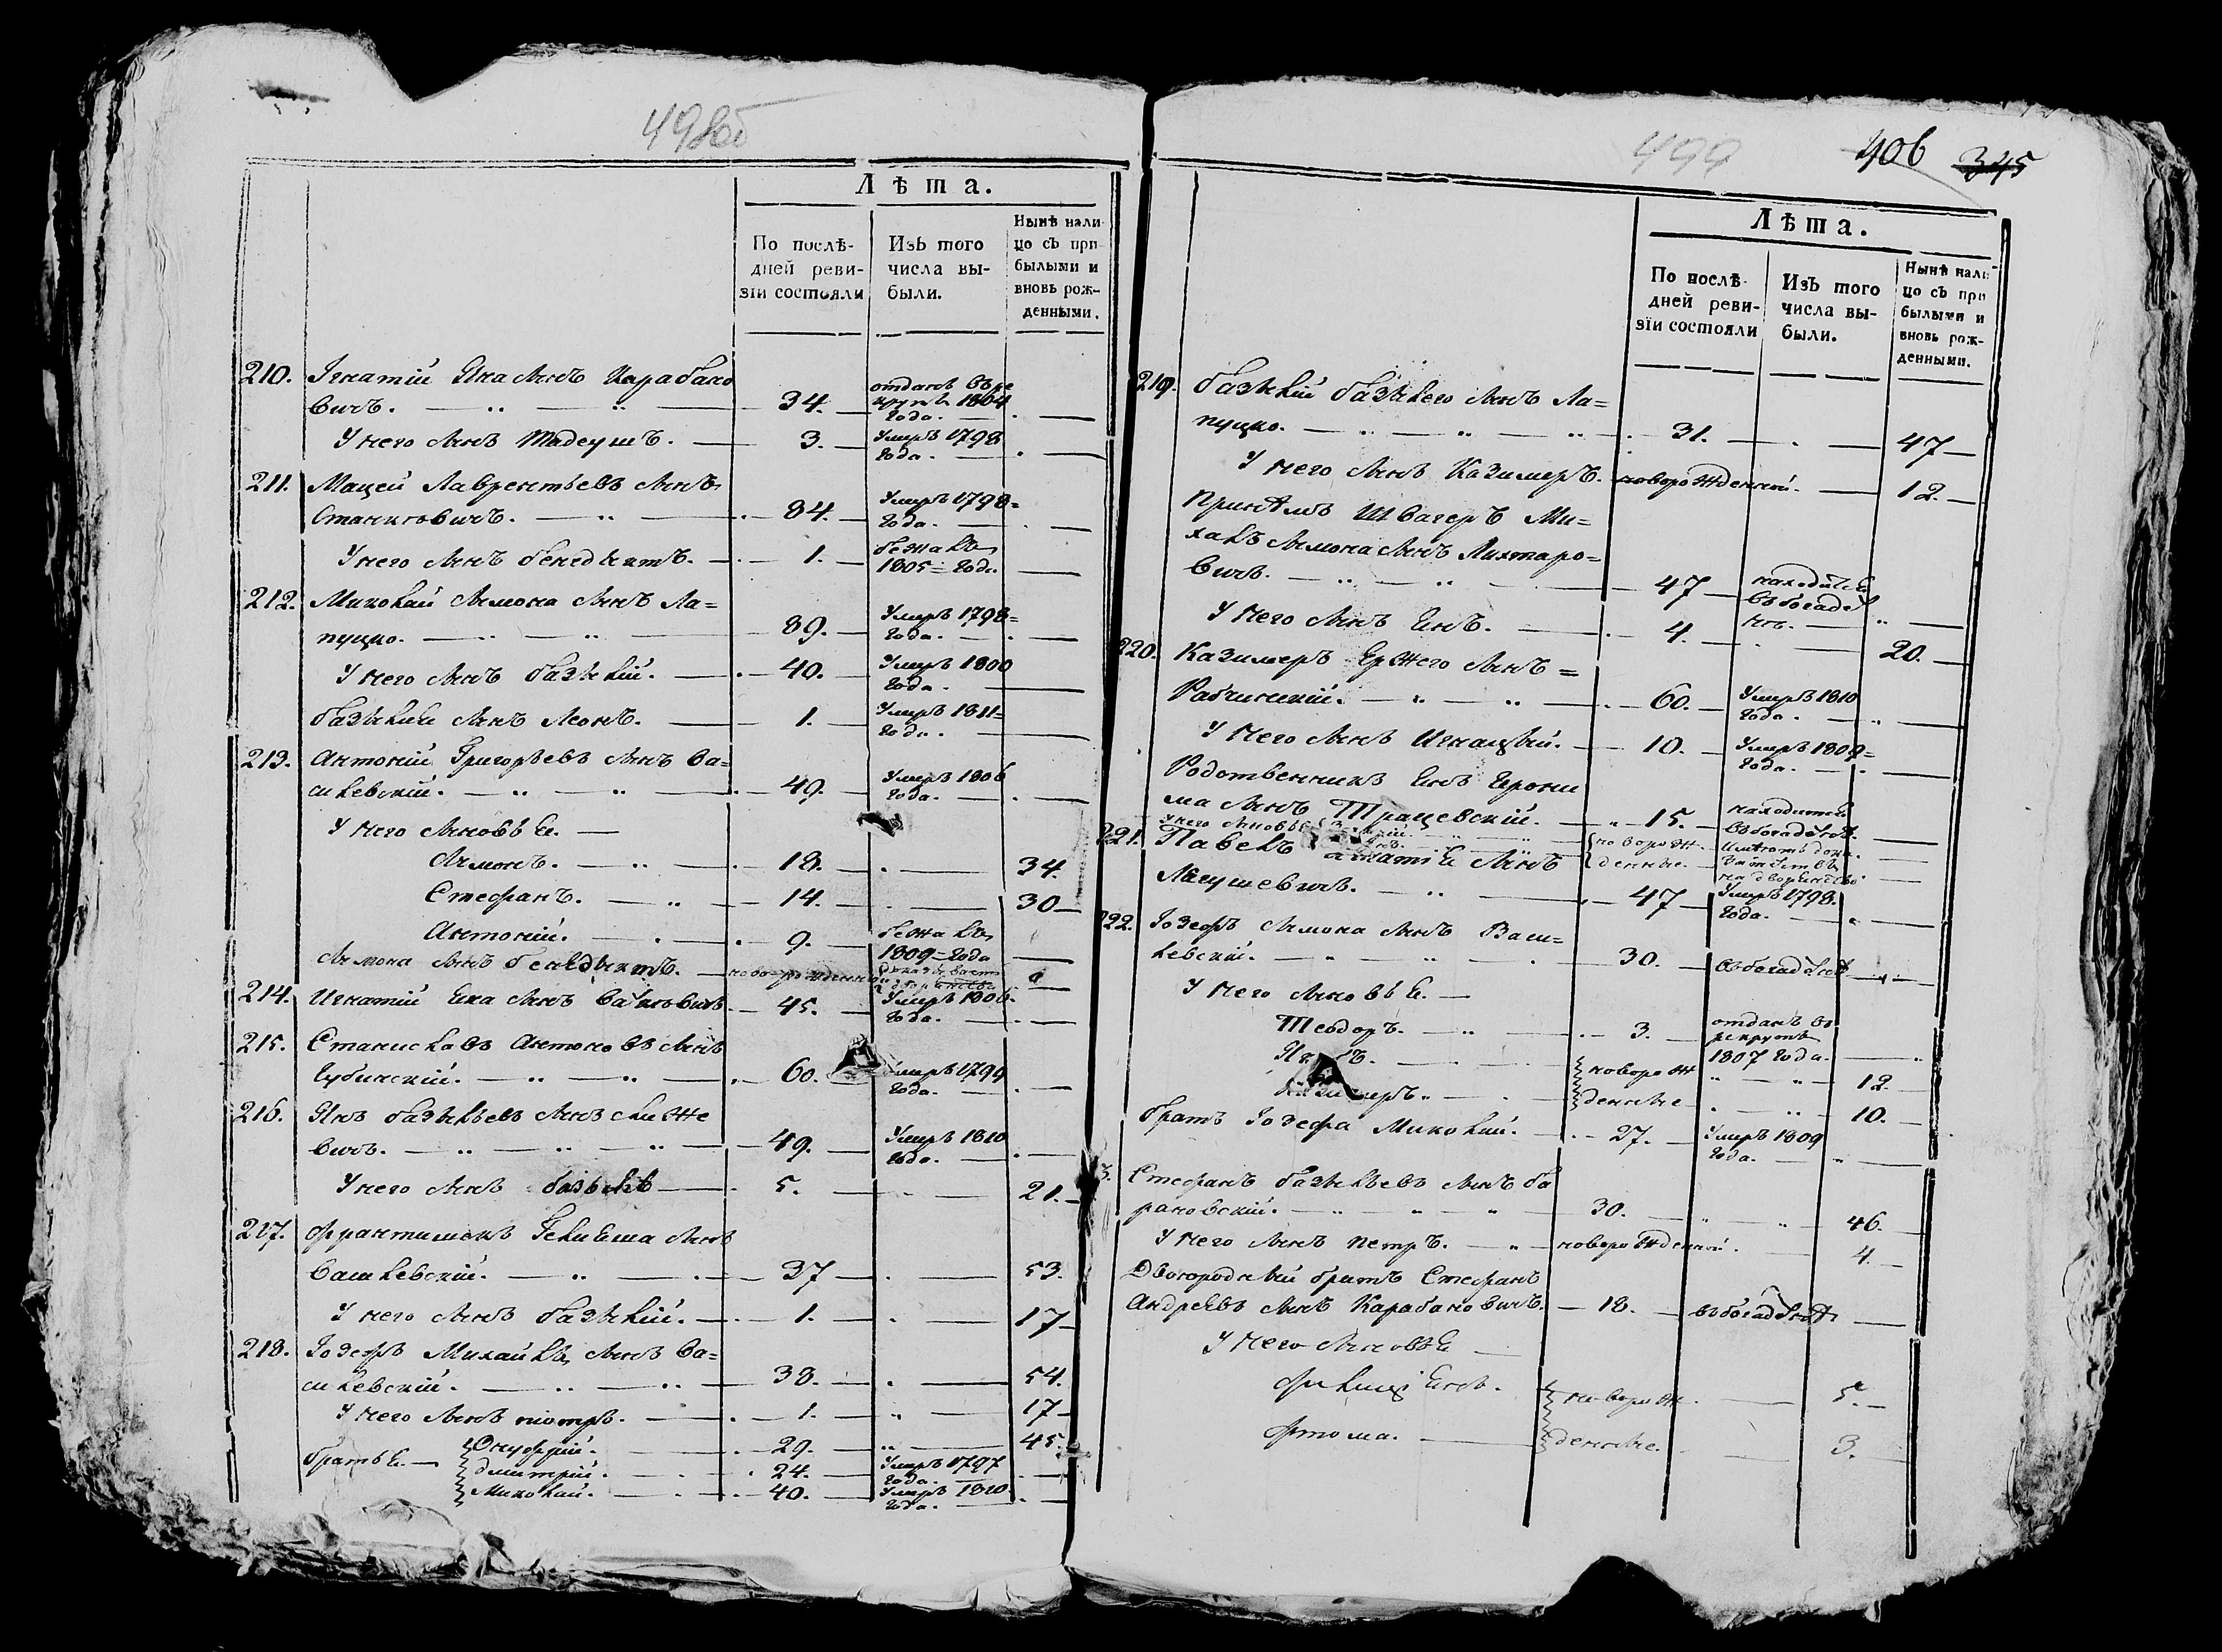 498об
Лѣта.
По послѣ-
дней реви-
зіи состояли
Изъ того
числа вы-
были.
Нынѣ нали
цо съ при
былыми и
вновь рож-
денными.
210. Игнатій Яна сынъ Карабано
вичъ. 34. отданъ въ ре
круты 1804
года.
У него сынъ Тадеушъ. 3. Умеръ 1798
года.
211. Мацей Лаврентьевъ сынъ
Станкевичъ. 84. Умеръ 1798
года.
У него сынъ бенедыктъ. 1. бежалъ
1805 года.
212. Миколай Симона сынъ Ла=
пуцко. 89. Умеръ 1798
года.
У него сынъ базылій. 40. Умеръ 1800
года.
базылія сынъ Леонъ. 1. Умеръ 1811
года.
213. Антоній Григорьевъ сынъ Ва=
силевскій. 49. Умеръ 1806
года.
У него сыновья.
Симонъ. 18. 34.
Стефанъ. 14. 30
Антоній. 9. бежалъ
1809 года
Симона сынъ бенедыктъ. новорожденный
214. Игнатій Яна сынъ 45. Умеръ 1806
года.
215. Станиславъ Антоновъ сынъ
60. Умеръ 1799
года.
216. Янъ базылевъ сынъ
вичъ. 49. Умеръ 1810
года.
У него сынъ базылій 5. 21.
217. Франтишекъ сынъ
Вашкевскій. 37 53.
У него сынъ базылій. 1. 17
218. Іозефъ Михайла сынъ Ва=
силевскій. 38. 54.
У него сынъ піотръ. 1. 17
братья Онуфрій. 29. 45.
дмитрій. 24. Умеръ 1797
года.
Миколай. 40. Умеръ 1810
года.
499 406 345
Лѣта.
По послѣ-
дней реви-
зіи состояли
Изъ того
числа вы-
были.
Нынѣ нали
цо съ при
былыми и
вновь рож-
денными.
219. базылій базылего сынъ Ла=
пуцко. 31. 47
У него сынъ Казимеръ. новорожденный. 12.
Принятъ Швагеръ Ми=
халъ Симона сынъ Лихтаро=
вичъ. 47 находится
въ богадел
нѣ.
У него сынъ Янъ. 4. 20.
220. Казимеръ Ержего сынъ =
Рабчинскій. 60. Умеръ 1810
года.
У него сынъ Игнацый. 10. Умеръ 1809
года.
Родственникъ Янъ Ерони
ма сынъ Трацевскій. 15. находится
въ богадельнѣ.
У него сыновья новорож
денные
221. Павелъ Игнатія сынъ
47 Умеръ 1798.
года.
222. Іозефъ Симона сынъ Васи=
левскій. 30. въ богадельнѣ
У него сыновья.
Теодоръ. 3. отданъ въ
рекруты
1807 года.
новорож 12.
Казимеръ. денные 10.
братъ Іозефа Миколай. 27. Умеръ 1809
года.
3. Стефанъ базылевъ сынъ ба
рановскій. 30. 46.
У него сынъ петръ. новорожденный. 4.
Двоюродный братъ Стефанъ
Андреевъ сынъ Карабановичъ. 18. въ богадельнѣ
У него сыновья
новорож. 5.
Фтома. денные. 3.